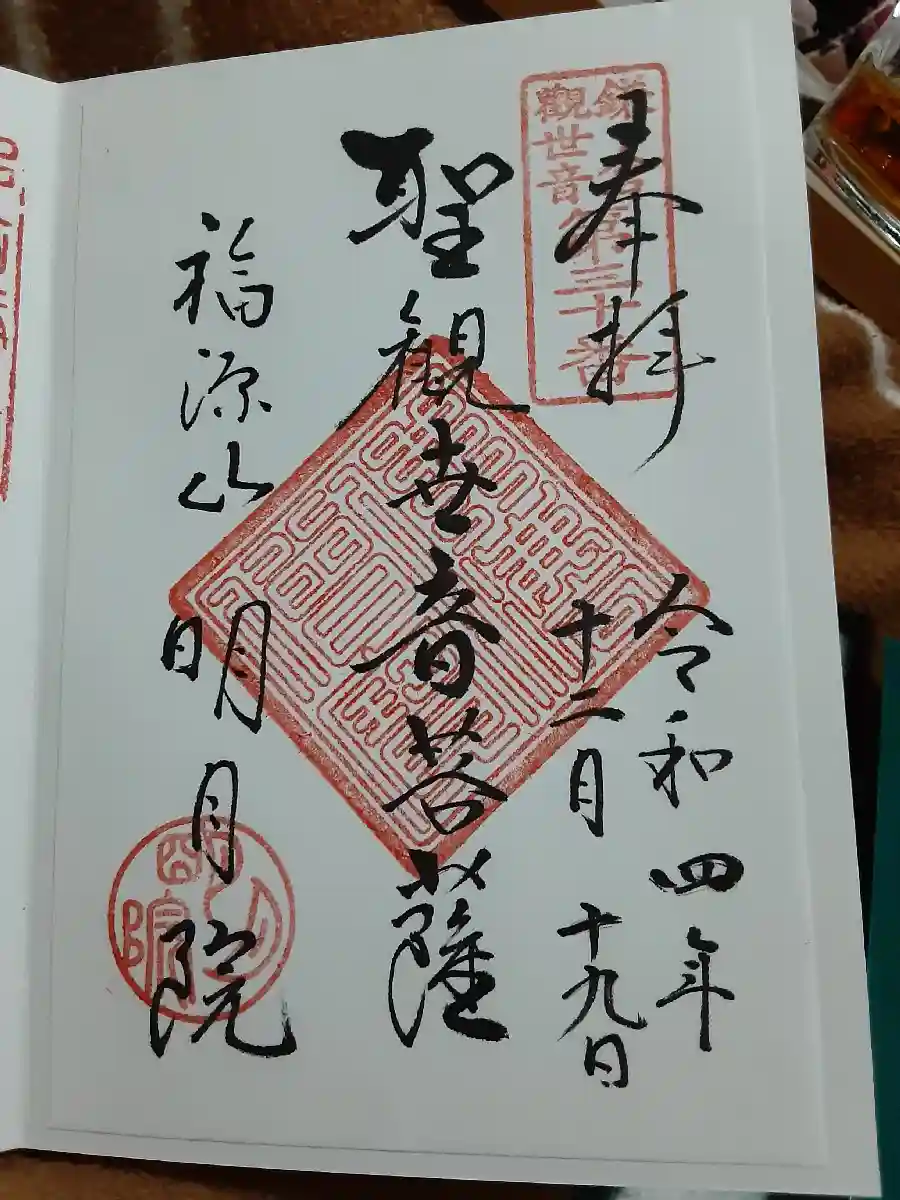 奉拝
令和四年
十二月十九日
聖観世音菩薩
福源山
明月院
鎌倉
観世音第三十番
明月院